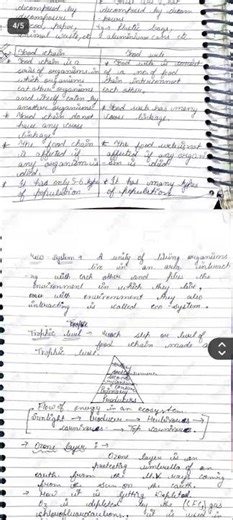 decomposed by
decomposed by decom
4/5
Food chain
Food web
Food chain is a
Food web is
series of organisms in
of a no of food
which organisms
chain interconnect
eat other organisms
each other
and itself eaten by
another organisms
Food web has many
Food chain do not
cross linkage.
have any cross
linkage.
The food chain
The food web is not
is affected if
affected if any organ
any organism is
ism is killed
killed.
It has only 5-6 types
It has many types
of population
of populations.
Eco system : A unity of living organisms
live in an area interact
ing with each other and also the
environment in which they live,
environment they also
interacting is called eco-system.
Trophic
Trophic level Each step or level of
food chain made a
Trophic level.
Producers
Flow of energy in an ecosystem.
Sunlight → Producer → Herbivores →
carnivores → Top carnivores.
→ Ozone layer : →
Ozone layer is an
protecting umbrella of an
earth from the U.V rays coming
from the sun on the earth.
→ How it is getting depleted.
O3 is depleted by the (CFC) gas
chlorofluorocarbons, it is used in